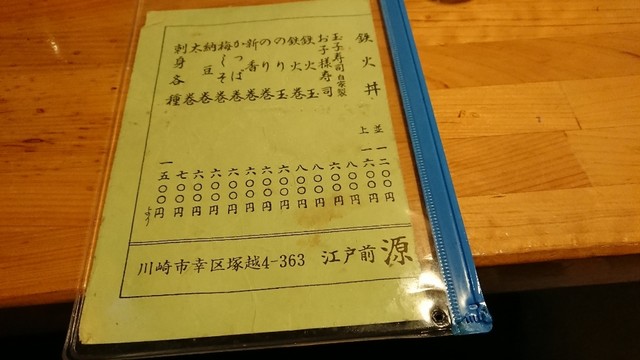 鉄火丼 並 一二〇〇円
上 一六〇〇円
玉子寿司 自家製 八〇〇円
お子様寿司 六〇〇円
鉄火玉 八〇〇円
鉄火巻 八〇〇円
のり玉 六〇〇円
のり巻 六〇〇円
新香巻 六〇〇円
かっぱ巻 六〇〇円
梅しそ巻 六〇〇円
納豆巻 六〇〇円
太巻 七〇〇円
刺身各種 一五〇〇円より
川崎市幸区塚越4-363 江戸前 源